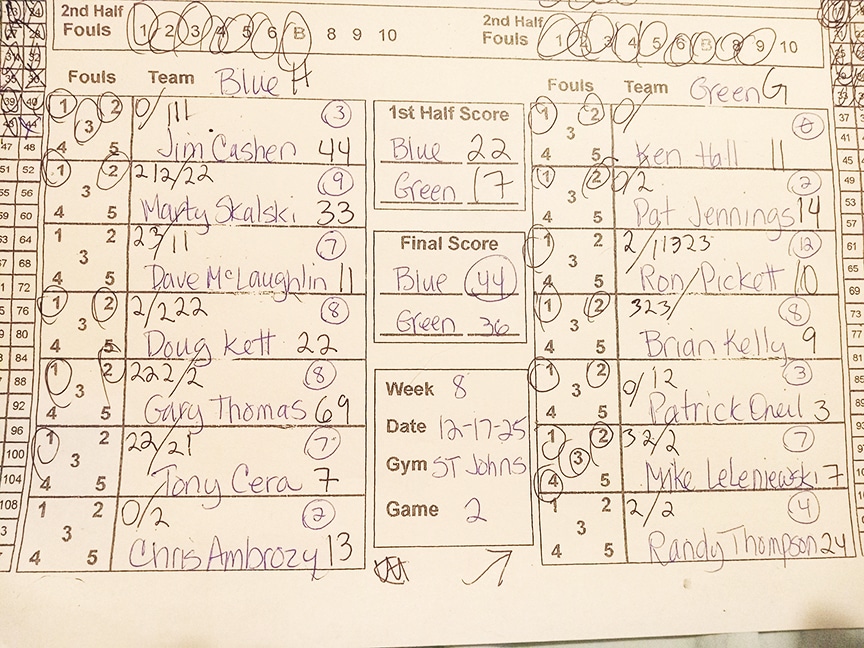 2nd Half Fouls 1 2 3 4 5 6 B 8 9 10
2nd Half Fouls 1 2 3 4 5 6 B 8 9 10
Fouls Team Blue H
1 2 3 4 5 0/111 3
Jim Cashen 44
1 2 3 4 5 212/22 9
Marty Skalski 33
1 2 3 4 5 23/11 7
Dave McLaughlin 11
1 2 3 4 5 2/222 8
Doug Kett 22
1 2 3 4 5 222/2 8
Gary Thomas 69
1 2 3 4 5 22/21 7
Tony Cera 7
1 2 3 4 5 0/2 2
Chris Ambrozy 13
1st Half Score
Blue 22
Green 17
Final Score
Blue 44
Green 36
Week 8
Date 12-17-25
Gym ST Johns
Game 2
Fouls Team Green G
1 2 3 4 5 0/ 0
Ken Hall 11
1 2 3 4 5 0/2 2
Pat Jennings 14
1 2 3 4 5 2/11323 12
Ron Pickett 10
1 2 3 4 5 323/ 8
Brian Kelly 9
1 2 3 4 5 0/12 3
Patrick Oneil 3
1 2 3 4 5 32/2 7
Mike Leleniewski 7
1 2 3 4 5 2/2 4
Randy Thompson 24
39 40
47 48
51 52
55 56
59 60
63 64
67 68
71 72
75 76
79 80
83 84
88
92
96
100
104
108
37
41
45
49
53
57
61
65